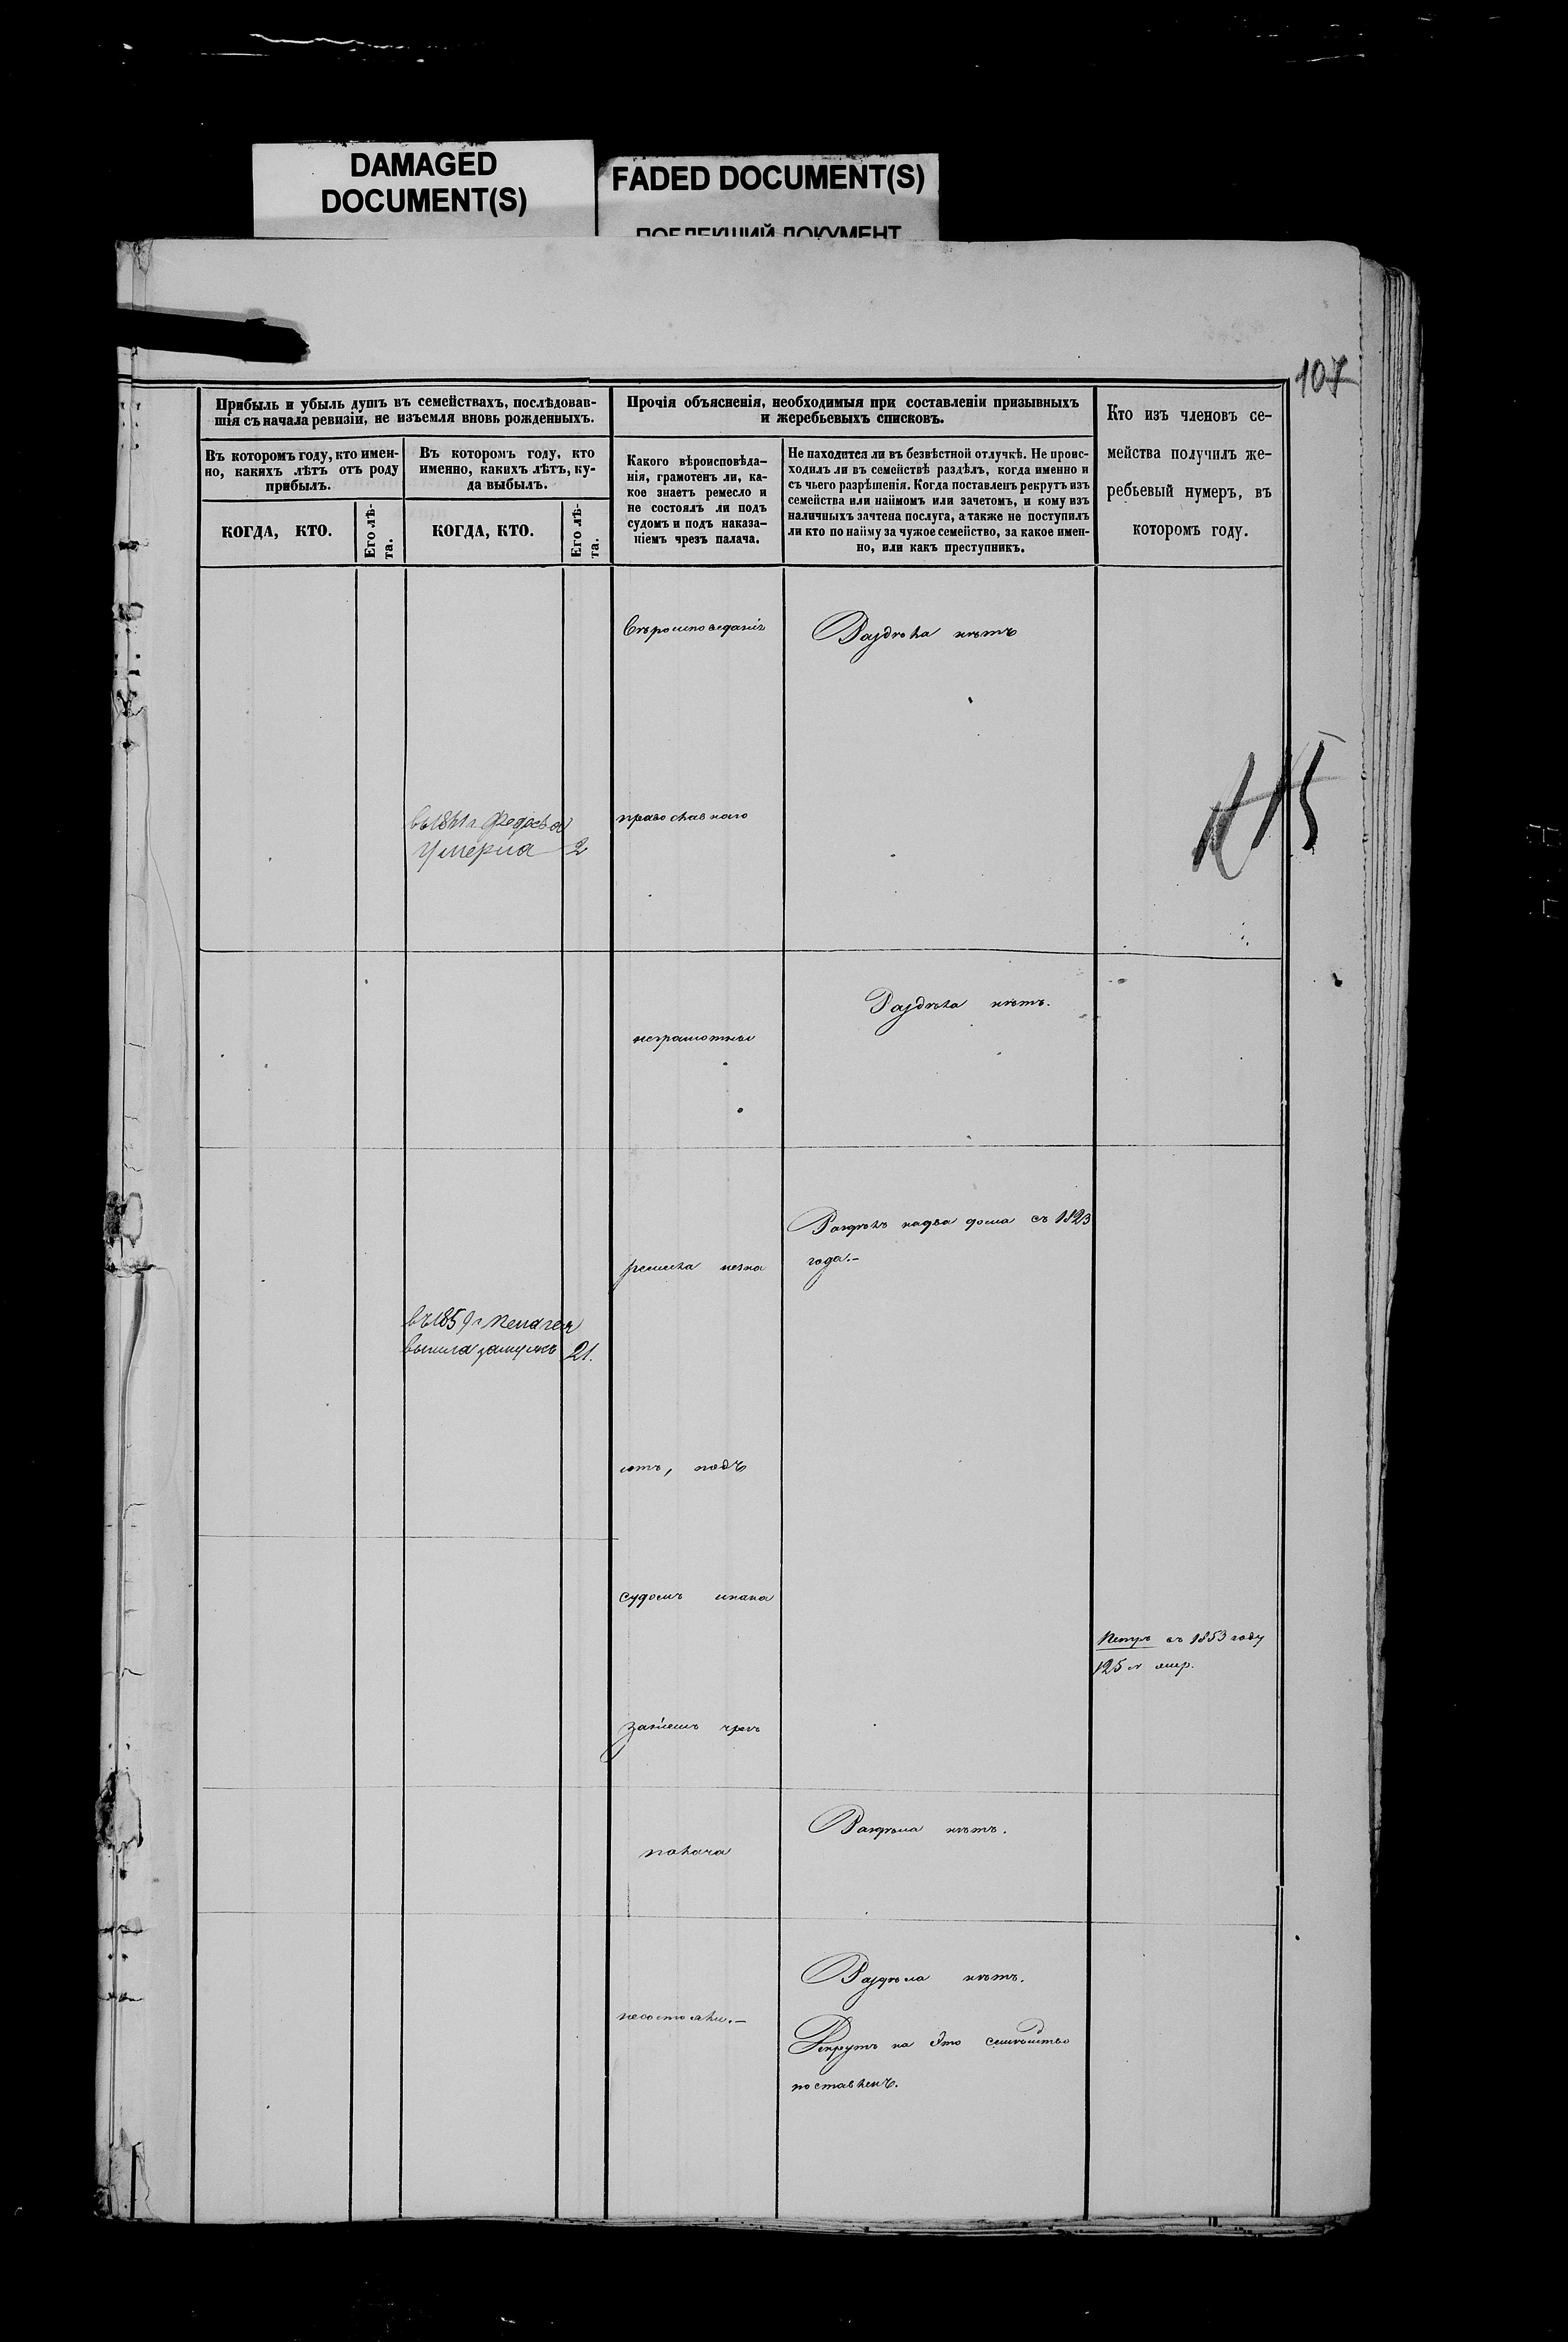 DAMAGED
DOCUMENT(S)
FADED DOCUMENT(S)
ПОБЛЕКШИЙ ДОКУМЕНТ
107
Прибыль и убыль душъ въ семействахъ, послѣдовав-
шія съ начала ревизіи, не изъемля вновь рожденныхъ.
Въ которомъ году, кто имен-
но, какихъ лѣтъ отъ роду
прибылъ.
КОГДА, КТО.
Его лѣ-
та.
Въ которомъ году, кто
именно, какихъ лѣтъ, ку-
да выбылъ.
КОГДА, КТО.
Его лѣ-
та.
Прочія объясненія, необходимыя при составленіи призывныхъ
и жеребьевыхъ списковъ.
Какого вѣроисповѣда-
нія, грамотенъ ли, ка-
кое знаетъ ремесло и
не состоялъ ли подъ
судомъ и подъ наказа-
ніемъ чрезъ палача.
Не находится ли въ безвѣстной отлучкѣ. Не проис-
ходилъ ли въ семействѣ раздѣлъ, когда именно и
съ чьего разрѣшенія. Когда поставленъ рекрутъ изъ
семейства или наймомъ или зачетомъ, и кому изъ
наличныхъ зачтена послуга, а также не поступилъ
ли кто по найму за чужое семейство, за какое имен-
но, или какъ преступникъ.
Кто изъ членовъ се-
мейства получилъ же-
ребьевый нумеръ, въ
которомъ году.
Вѣроисповеданія
Раздѣла нѣтъ
въ 1861 г Федосья
Умерла 2
православнаго
неграмотны
Раздѣла нѣтъ.
ремесла незна
Раздѣлъ надва дома съ 1823
года.-
въ 1859 г Пелагея
вышла замужъ 21.
ютъ, подъ
судомъ инака
Петръ въ 1853 году
125 №
заніемъ чрезъ
палача
Раздѣла нѣтъ.
несостояли.-
Раздѣла нѣтъ.
Рекрутъ на это семѣйство
поставленъ.